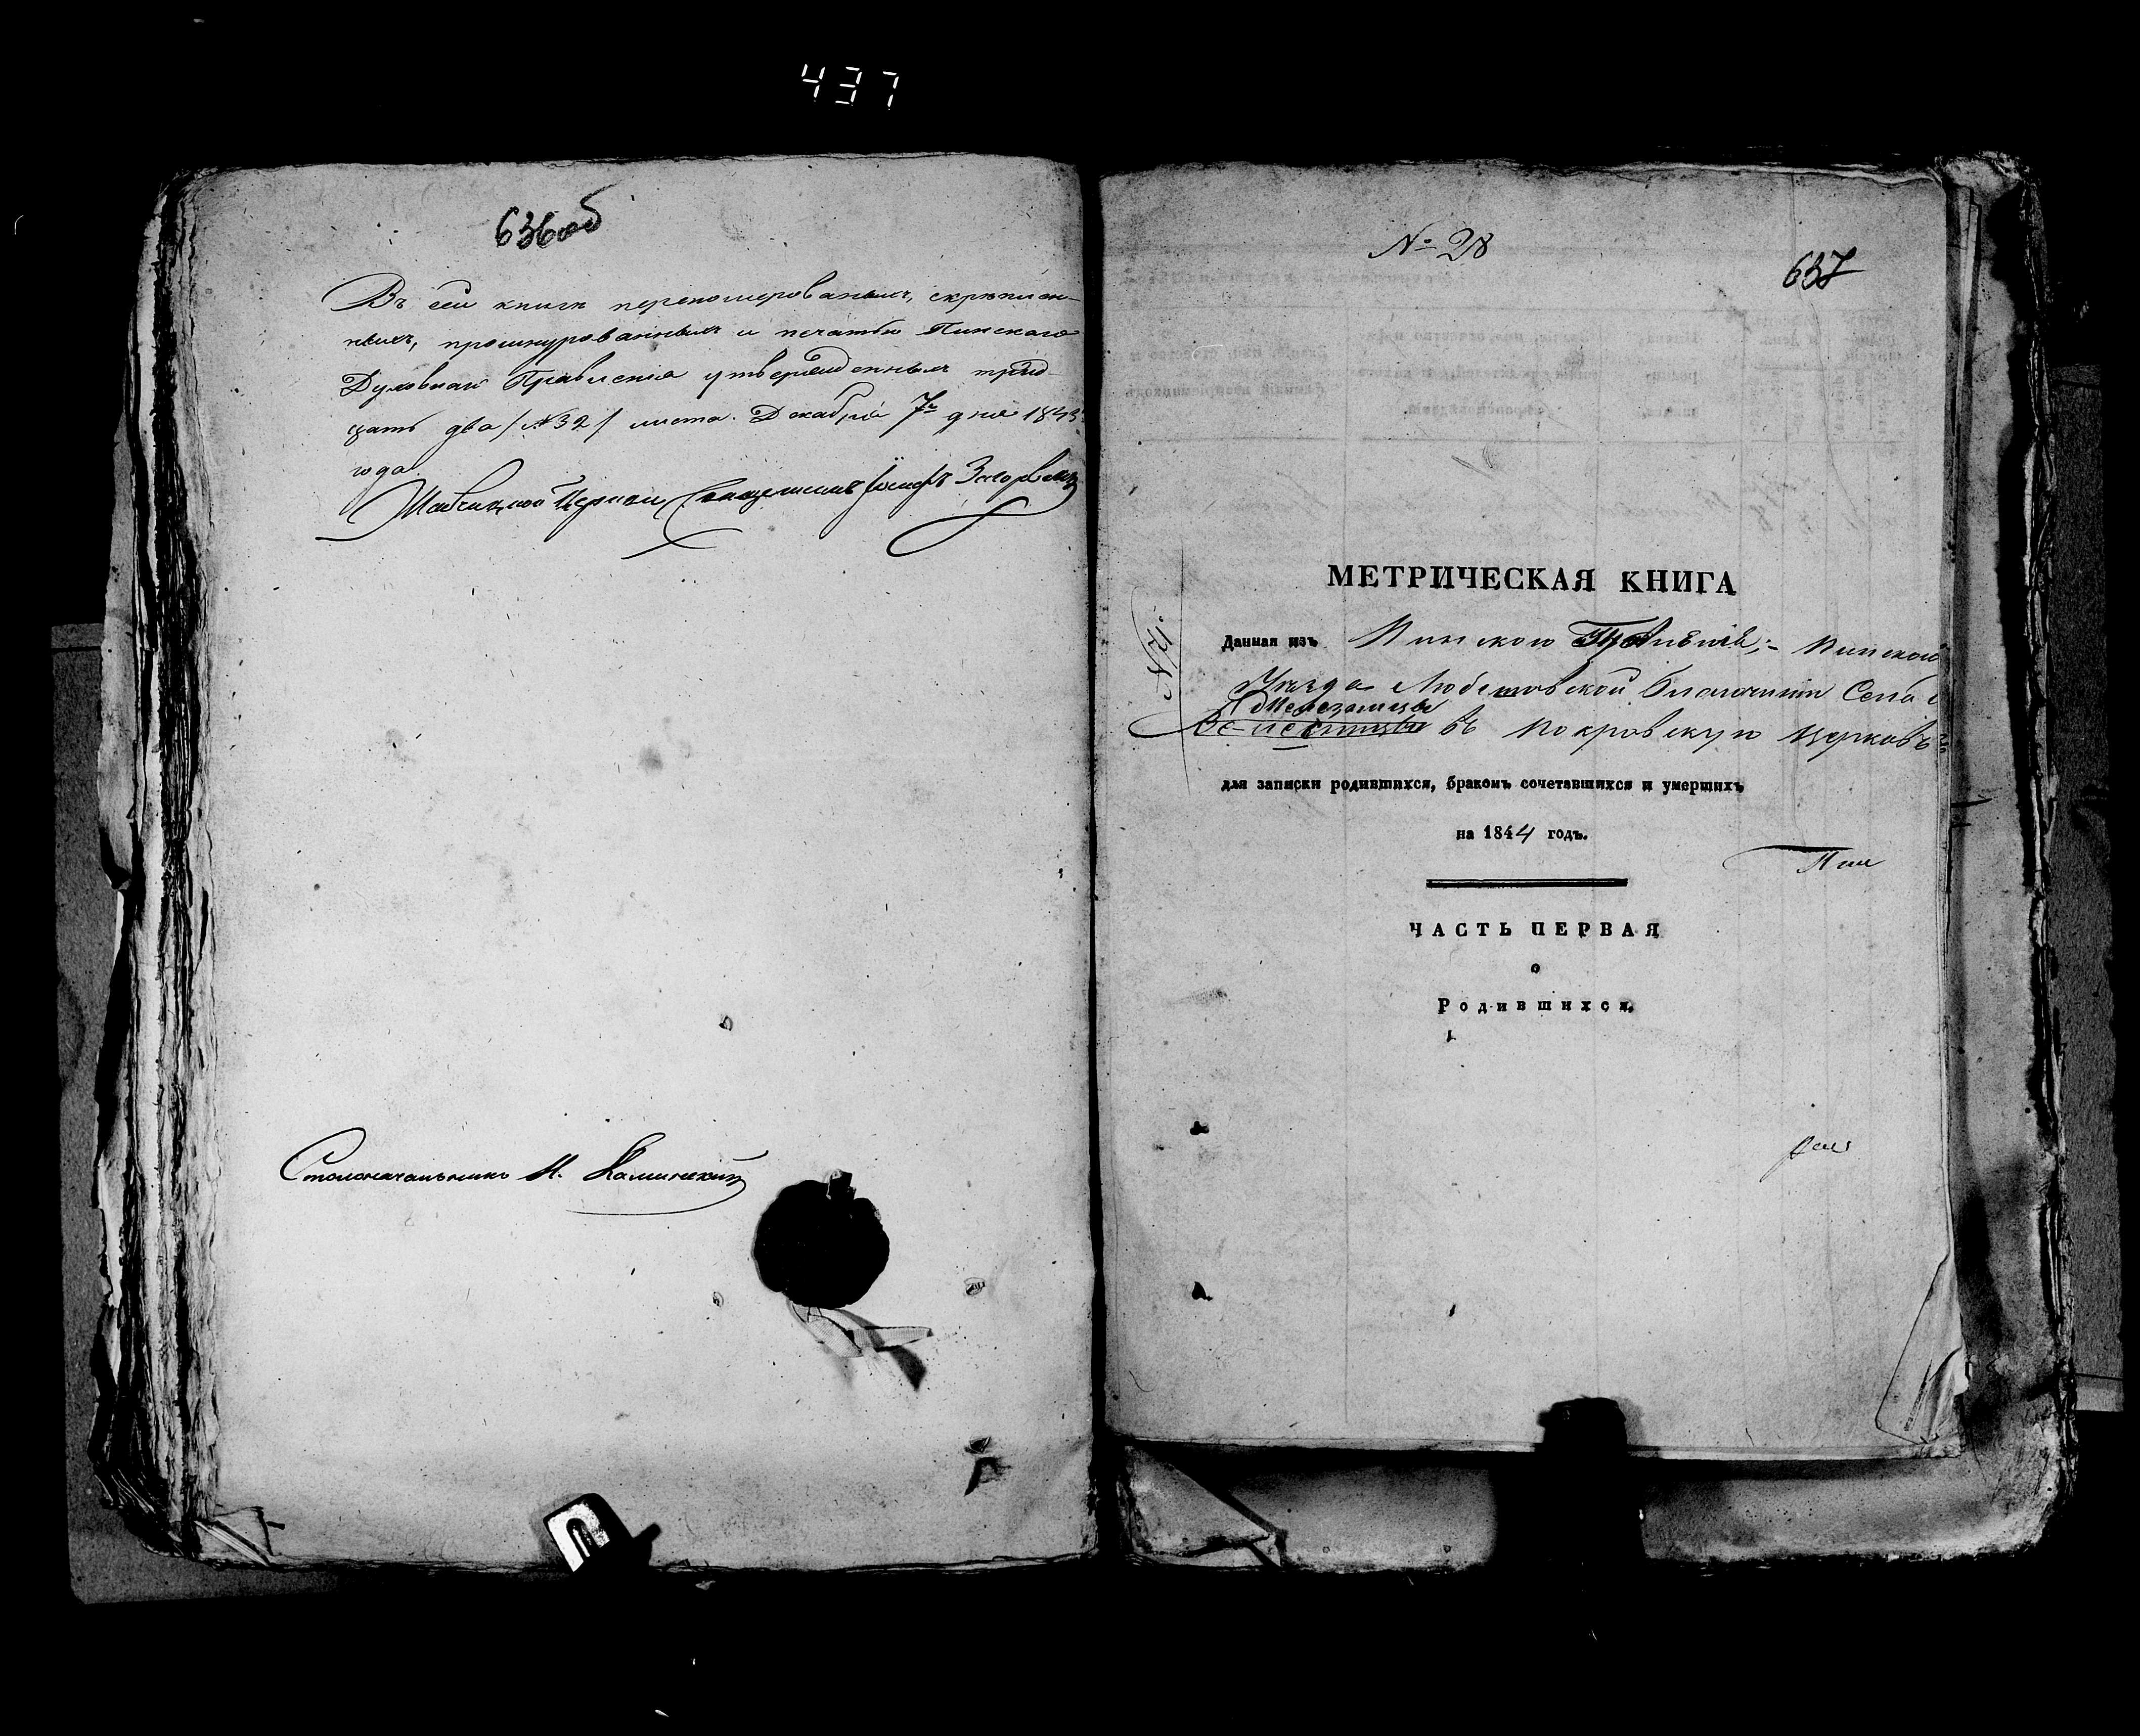 437
636об
Въ сей книге перенумерованныхъ, скрѣплен-
ныхъ, прошнурованныхъ и печатью Пинскаго
Духовнаго Правленія утвержденныхъ трид-
цать два /№ 32/ листа. Декабря 7го дня 1843
года
Церкви Священникъ Іосифъ
Столоначальникъ Н. Калинскій
№ 28
637
МЕТРИЧЕСКАЯ КНИГА
Данная изъ Пинского Пинской
Уѣзда Любешовской Благочинія Села
въ Покровскую Церковь
для записки родившихся, бракомъ сочетавшихся и умершихъ
на 1844 годъ.
ЧАСТЬ ПЕРВАЯ
о
Родившихся.